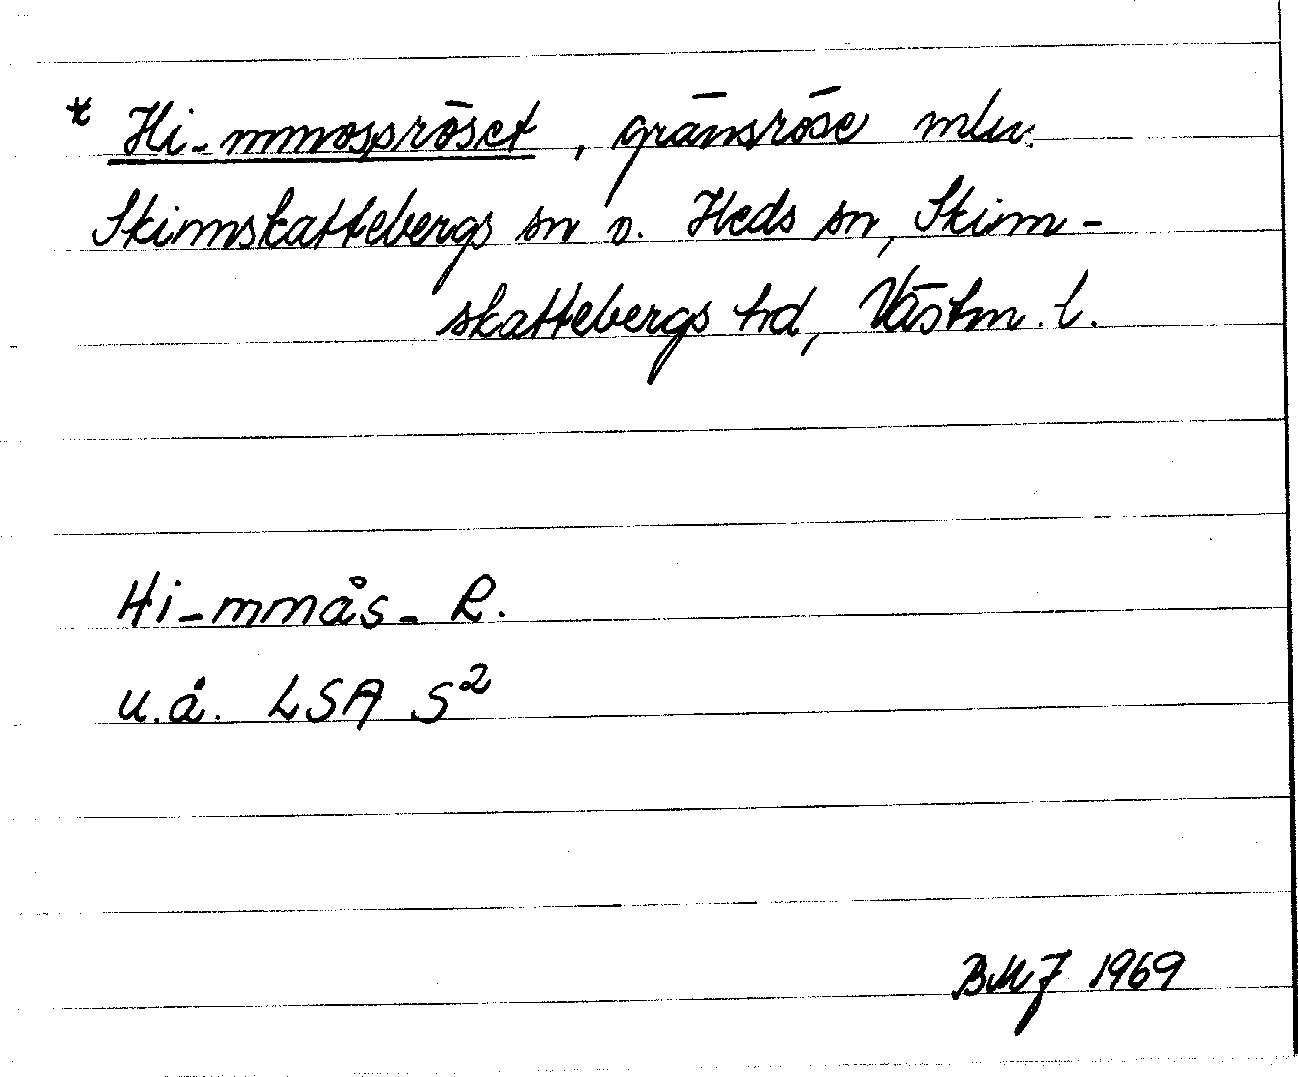 * Hi-mmosröset, gränsröse mlu.
Skinnskattebergs sn o. Heds sn, Skinn-
skattebergs hd, Västm. l.
Hi-mmås- R.
u.å. LSA S²
BMJ 1969